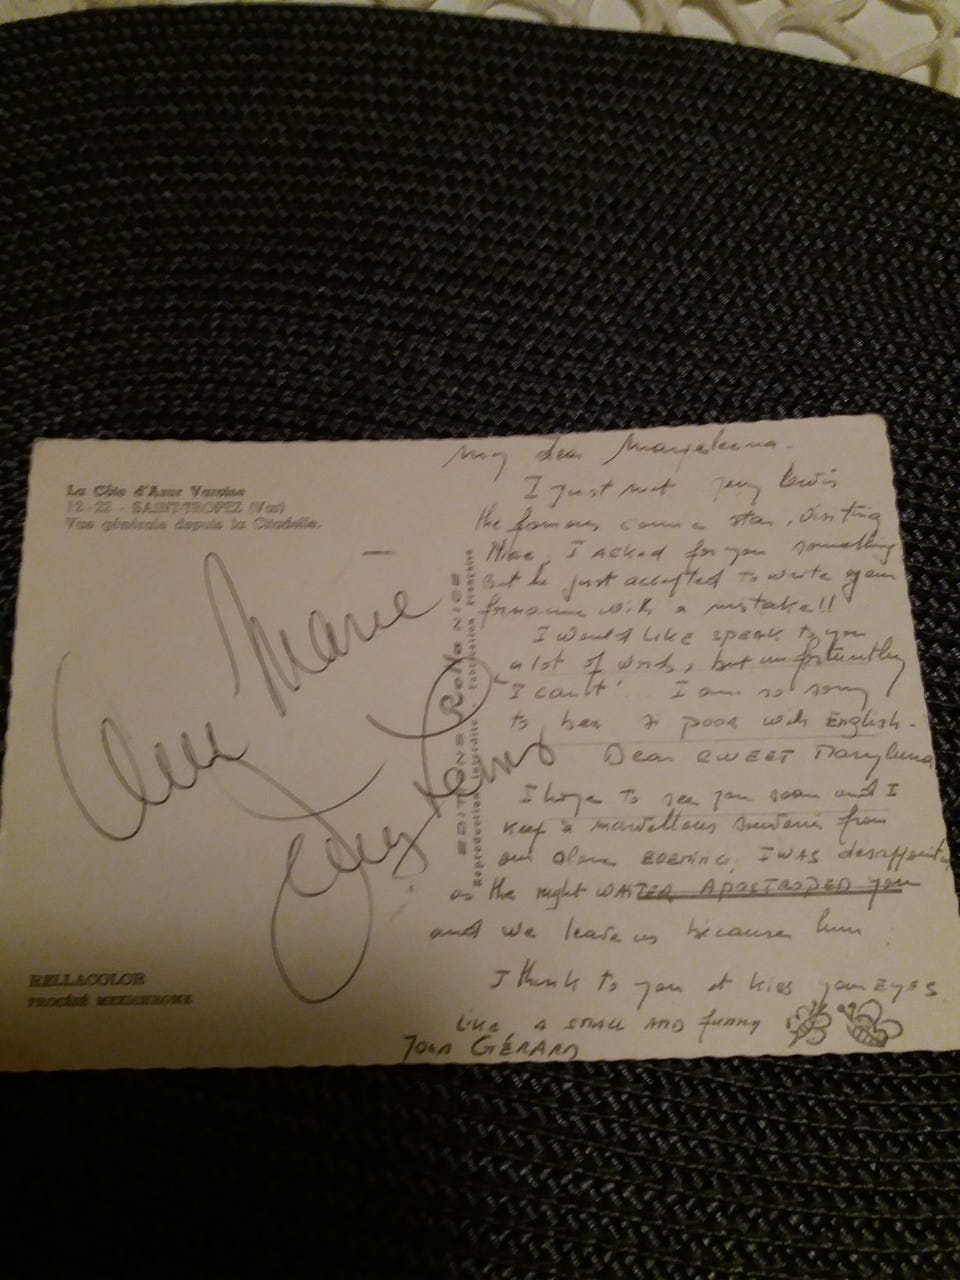 La Côte d'Azur Varoise
12-22 - SAINT-TROPEZ (Var)
Vue générale depuis la Citadelle.
Marie
Jerry Lewis
EDITIONS Rella NICE
Reproduction Interdite - Fabrication Française
RELLACOLOR
PROCÉDÉ MEXICHROME
My Dear
I just met Jerry Lewis
the famous star, visiting
Nice, I asked for you something
But he just accepted to write your
with a mistake!!
I would like speak to you
a lot of words, but
I can't. I am so sorry
to bee so poor with English.
Dear SWEET
I hope to see you soon and I
keep a marvellous souvenir from
our EVENING. I WAS
as the night WAITER APOSTROPED you
and we leave us because him
I thank to you et kiss your EYES
like A SMALL AND funny
Your GÉRARD